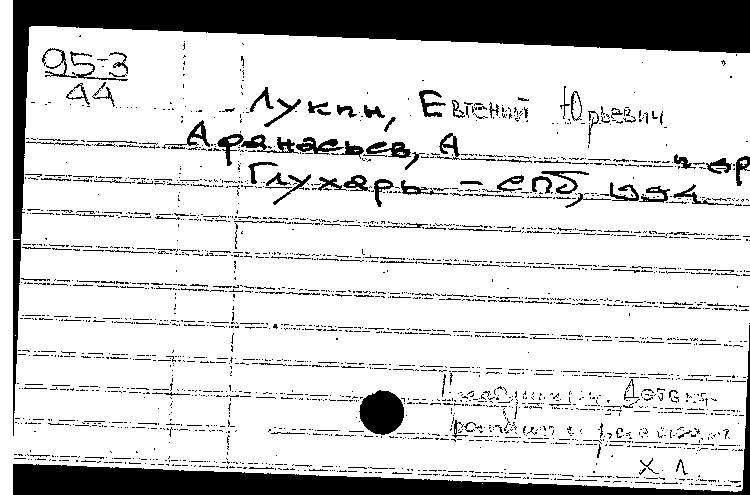 95-3
44
Лукин, Евгений Юрьевич
Афанасьев, А и др
Глухарь. – СПб, 1994.
Х Л